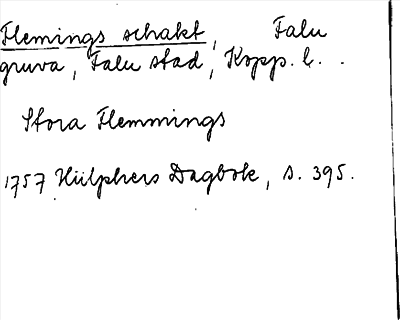 Flemings schakt, Falu
gruva, Falu stad, Kopp. l. .
Stora Flemmings
1757 Hülphers Dagbok, s. 395.